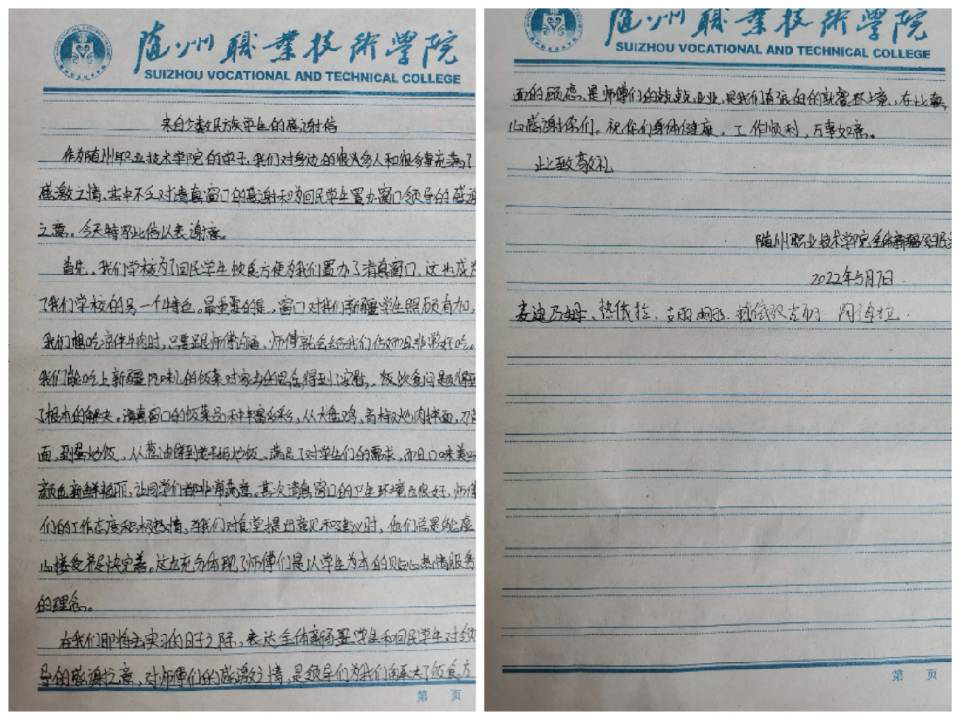 随州职业技术学院
SUIZHOU VOCATIONAL AND TECHNICAL COLLEGE
来自少数民族学生的感谢信
作为随州职业技术学院的学子,我们对身边的很多人和很多事充满了
感激之情,其中不乏对清真窗口的感谢和为回民学生置办窗口领导的感谢
之意。今天特写此信以表谢意。
首先,我们学校为了回民学生饮食方便为我们置办了清真窗口,这也成为
了我们学校的另一个特色。最重要的是,窗口对我们新疆学生照顾有加,
我们想吃凉伴牛肉时,只要跟师傅沟通,师傅就会给我们做而且非常好吃。
我们能吃上新疆风味的饭菜对家乡的思念得到了安慰,饭饮食问题得到
了根本的解决。清真窗口的饭菜品种丰富多彩,从大盘鸡,青椒炒肉拌面,刀削
面,到蛋炒饭,从葱油到炒饭,满足了对学生们的需求,而且口味美
颜色新鲜艳丽,让同学们都非常满意。其次清真窗口的卫生环境也很好,师傅
们的工作态度积极热情,当我们对食堂提出意见和建议时,他们总是能虚
心接受尽快完善。这也充分体现了师傅们是以学生为本的贴心热情服务
的理念。
在我们即将去实习的日子之际,表达全体新疆学生和回民学生对领
导的感谢之意,对师傅们的感激之情,是领导们为我们解决了饮食方
第 页
随州职业技术学院
SUIZHOU VOCATIONAL AND TECHNICAL COLLEGE
面的顾虑,是师傅们的兢兢业业,是我们直张的的就餐权上意,在此真
心感谢你们。祝你们身体健康,工作顺利,万事如意。
此致敬礼
随州职业技术学院全体新疆回民
2022年5月7日
麦迪乃姆、热依拉、
第 页